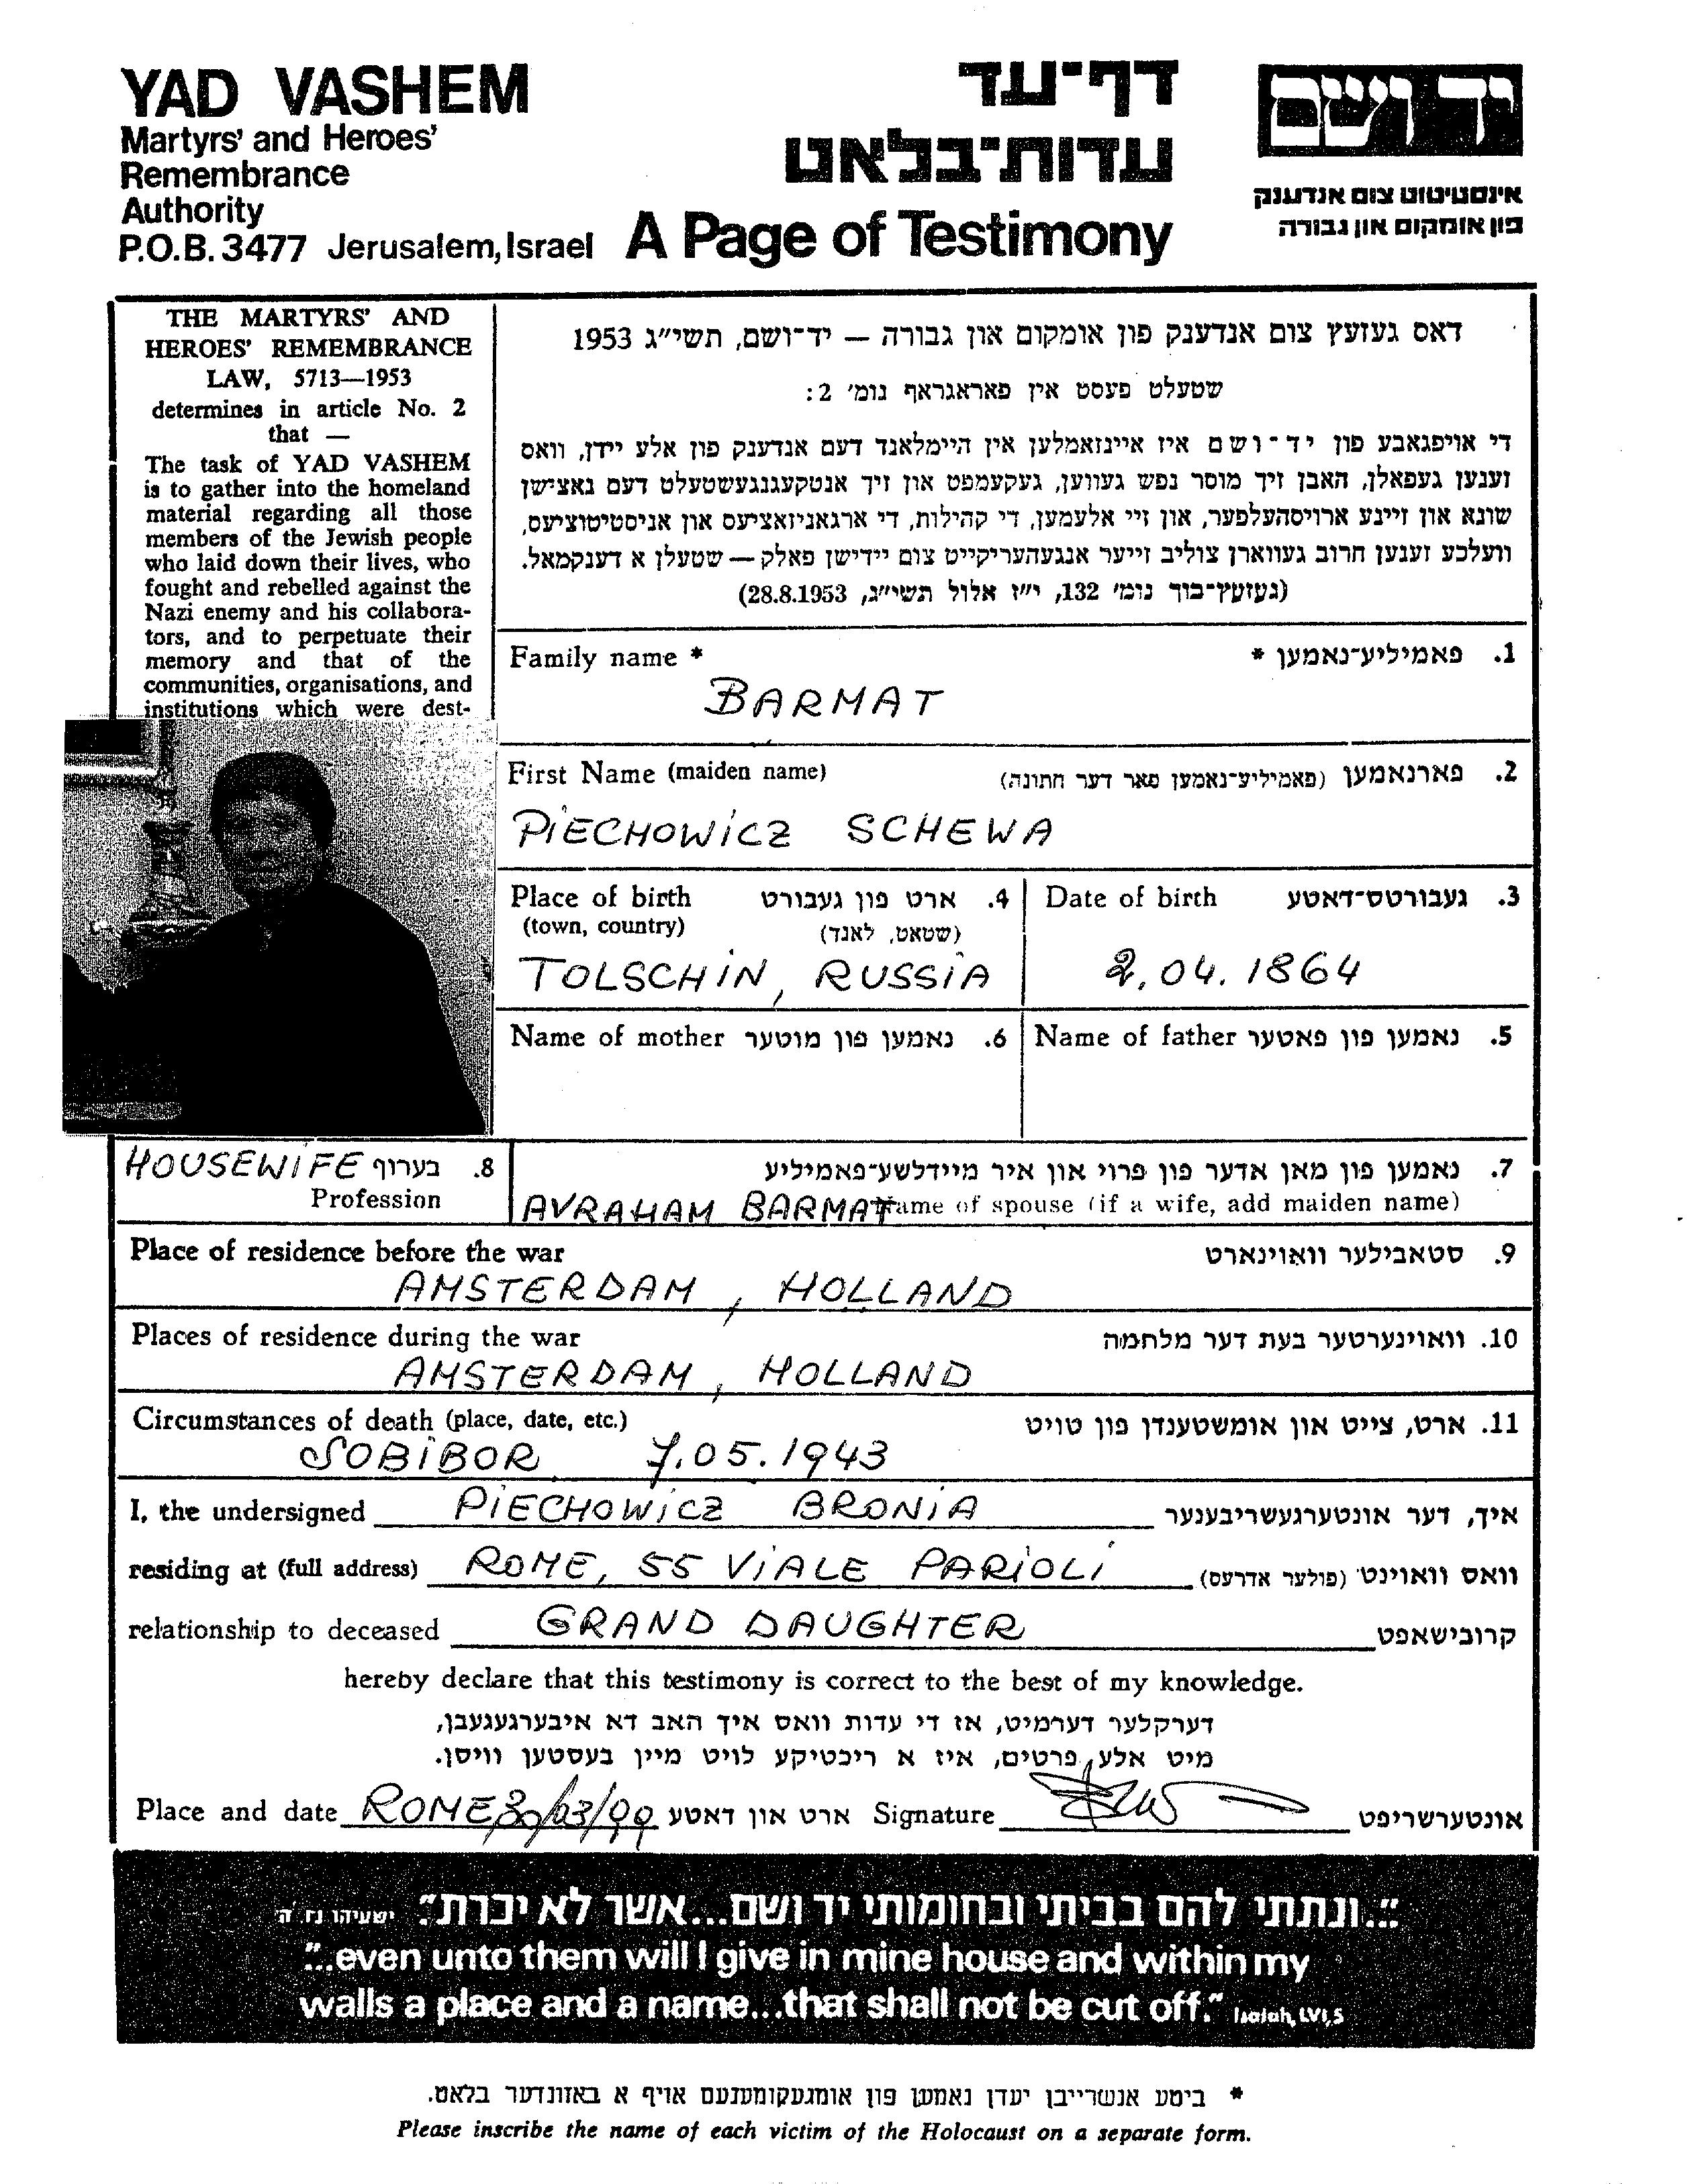 YAD VASHEM
Martyrs' and Heroes'
Remembrance
Authority
P.O.B. 3477 Jerusalem, Israel
דף־עד
עדות־בלאט
A Page of Testimony
יד ושם
אינסטיטוט צום אנדענק
פון אומקום און גבורה
THE MARTYRS' AND
HEROES' REMEMBRANCE
LAW, 5713—1953
determines in article No. 2
that —
The task of YAD VASHEM
is to gather into the homeland
material regarding all those
members of the Jewish people
who laid down their lives, who
fought and rebelled against the
Nazi enemy and his collabora-
tors, and to perpetuate their
memory and that of the
communities, organisations, and
institutions which were dest-
דאס געזעץ צום אנדענק פון אומקום און גבורה — יד־ושם, תשי״ג 1953
שטעלט פעסט אין פאראגראף נומ׳ 2:
די אויפגאבע פון יד־ושם איז איינזאמלען אין היימלאנד דעם אנדענק פון אלע יידן, וואס
זענען געפאלן, האבן זיך מוסר נפש געווען, געקעמפט און זיך אנטקעגנגעשטעלט דעם נאצישן
שונא און זיינע ארויסהעלפער, און זיי אלעמען, די קהילות, די ארגאניזאציעס און אניסטיטוציעס,
וועלכע זענען חרוב געווארן צוליב זייער אנגעהעריקייט צום יידישן פאלק — שטעלן א דענקמאל.
(געזעץ־בוך נומ׳ 132, י״ז אלול תשי״ג, 28.8.1953)
Family name * פאמיליע־נאמען * .1
BARMAT
First Name (maiden name) פארנאמען (פאמיליע־נאמען פאר דער חתונה) .2
PIECHOWICZ SCHEWA
Place of birth ארט פון געבורט .4
(town, country) (שטאט, לאנד)
TOLSCHIN, RUSSIA
Date of birth געבורטס־דאטע .3
2.04.1864
Name of mother נאמען פון מוטער .6
Name of father נאמען פון פאטער .5
HOUSEWIFE בערוף .8
Profession
נאמען פון מאן אדער פון פרוי און איר מיידלשע־פאמיליע .7
AVRAHAM BARMAT Name of spouse (if a wife, add maiden name)
Place of residence before the war סטאבילער וואוינארט .9
AMSTERDAM, HOLLAND
Places of residence during the war וואוינערטער בעת דער מלחמה .10
AMSTERDAM, HOLLAND
Circumstances of death (place, date, etc.) ארט, צייט און אומשטענדן פון טויט .11
SOBIBOR 7.05.1943
I, the undersigned PIECHOWICZ BRONIA איך, דער אונטערגעשריבענער
residing at (full address) ROME, 55 VIALE PARIOLI וואס וואוינט (פולער אדרעס)
relationship to deceased GRAND DAUGHTER קרובישאפט
hereby declare that this testimony is correct to the best of my knowledge.
דערקלער דערמיט, אז די עדות וואס איך האב דא איבערגעגעבן,
מיט אלע פרטים, איז א ריכטיקע לויט מיין בעסטען וויסן.
Place and date ROME 30/03/99 ארט און דאטע Signature אונטערשריפט
״...ונתתי להם בביתי ובחומותי יד ושם...אשר לא יכרת״. ישעיהו נו ה׳
"...even unto them will I give in mine house and within my
walls a place and a name...that shall not be cut off." Isaiah, LVI,5
* ביטע אנשרייבן יעדן נאמען פון אומגעקומענעם אויף א באזונדער בלאט.
Please inscribe the name of each victim of the Holocaust on a separate form.